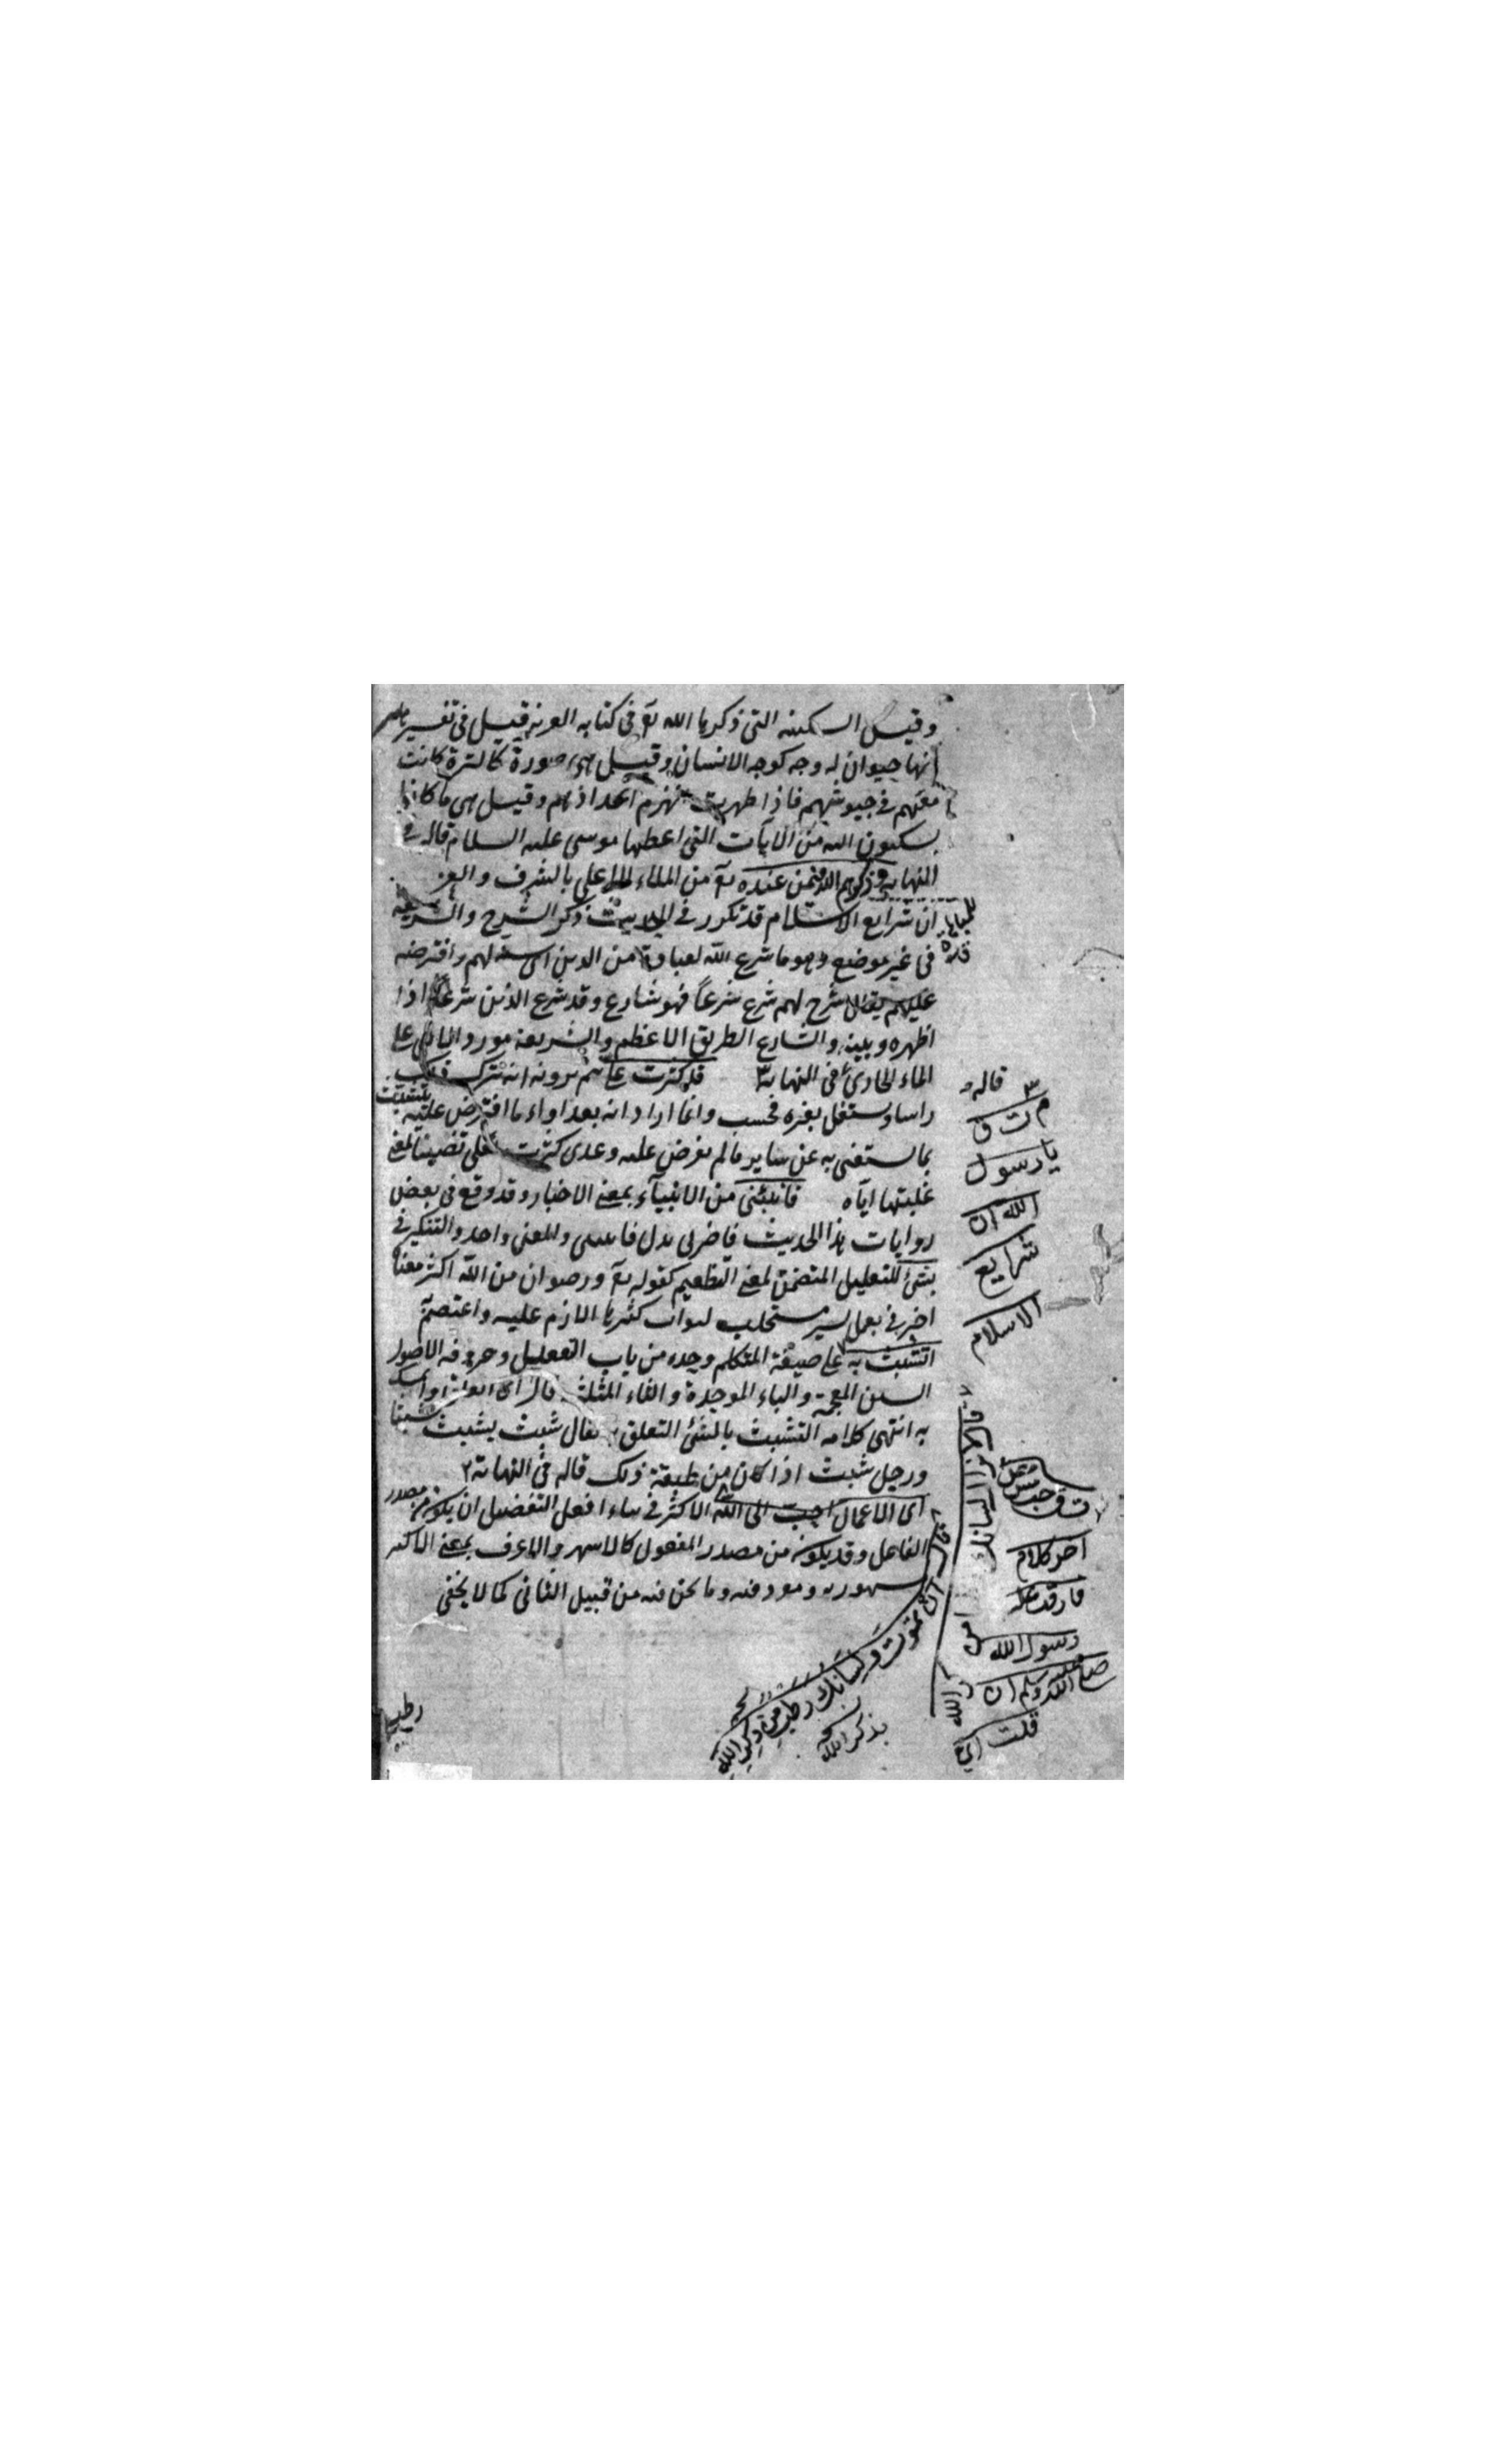 وقيل السكينه التى ذكرها الله تع فى كتابه العزيز قيل فى تفسيرها
انها حيوان له وجه كوجه الانسان وقيل هى صورة كالهرة كانت
معهم فى جيوشهم فاذا ظهرت انهزم اعداؤهم وقيل هى ما كانوا
يسكنون اليه من الآيات التى اعطيها موسى عليه السلام قاله فى
النهايه وذكرهم الله فيمن عنده تع من الملاء الاعلى بالشرف والعز
ان شرايع الاسلام قد تكرر فى الحديث ذكر الشرح والشريعه
فى غير موضع وهو ما شرع الله لعباده من الدين اى سنه لهم وافترضه
عليهم يقال شرع لهم شرع شرعاً فهو شارع وقد شرع الدين شرعاً اذا
اظهره وبينه والشارع الطريق الاعظم والشريعه مورد الابل على
الماء الجارى فى النهايه ٣ قد كثرت على لم يرد به انه يترك ذلك
راسا ويشتغل بغيره فحسب وانما اراد انه بعد اداء ما افترض عليه يتشبث
بما يستغنى به عن ساير ما لم يفرض عليه وعدى كثرت بعلى تضمينا لمعنى
غلبتها اياه فانبئنى من الانبياء بمعنى الاخبار وقد وقع فى بعض
روايات هذا الحديث فاخبرنى بدل فانبئنى والمعنى واحد والتنكير فى
بشئ للتقليل المتضمن لمعنى التعظيم كقوله تع ورضوان من الله اكبر معناه
اخبرنى بعمل يسير مستجلب لثواب كثير الازم عليه واعتصم به
اتشبث به على صيغة المتكلم وحده من باب التفعل وحروفه الاصول
الشين المعجمة والباء الموحدة والثاء المثلثة قال اى اتعلق واتمسك
به انتهى كلامه التشبث بالشئ التعلق به يقال شبث يشبث شبثا
ورجل شبث اذا كان من طبيعته ذلك قاله فى النهايه ٢
اى الاعمال احب الى الله الاكثر فى بناء افعل التفضيل ان يكون من مصدر
الفاعل وقد يكون من مصدر المفعول كالاشهر والاعرف بمعنى الاكثر
مشهوريه ومعروفيه وما نحن فيه من قبيل الثانى كما لا يخفى
رطب
٣ قاله
م ت ق
يا رسول
الله ان
شرايع
الاسلام
ت ق
اخر كلام
فارقت عليه
رسول الله
صلى الله عليه وسلم ان
قلت اى
قال ان تموت ولسانك رطب من ذكر الله
بذكر الله